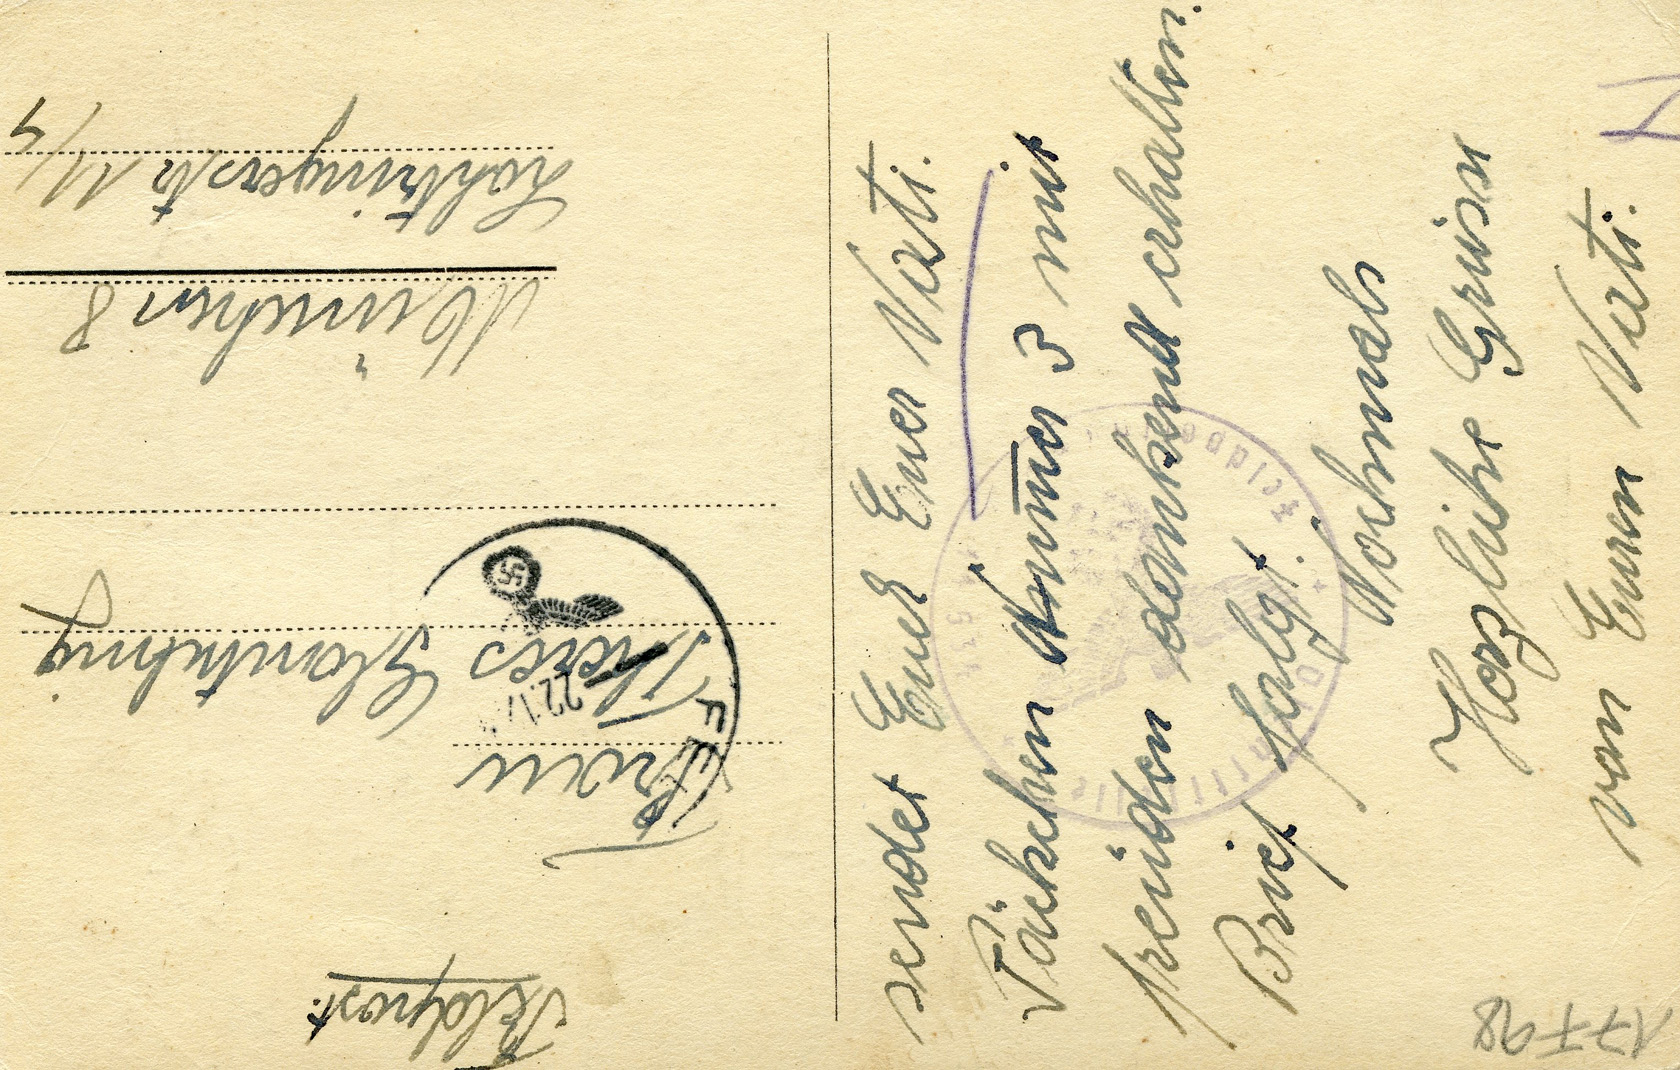 sendet Euch Euer Vati.
Päckchen Nummer 3 mit
freuden dankend erhalten.
Brief folgt.
Nochmals
Herzliche Grüsse
von Euren Vati.
Feldpost.
Frau
Theres
München 8
Lothringerstr 11/4
22.1
FE
Feldpost